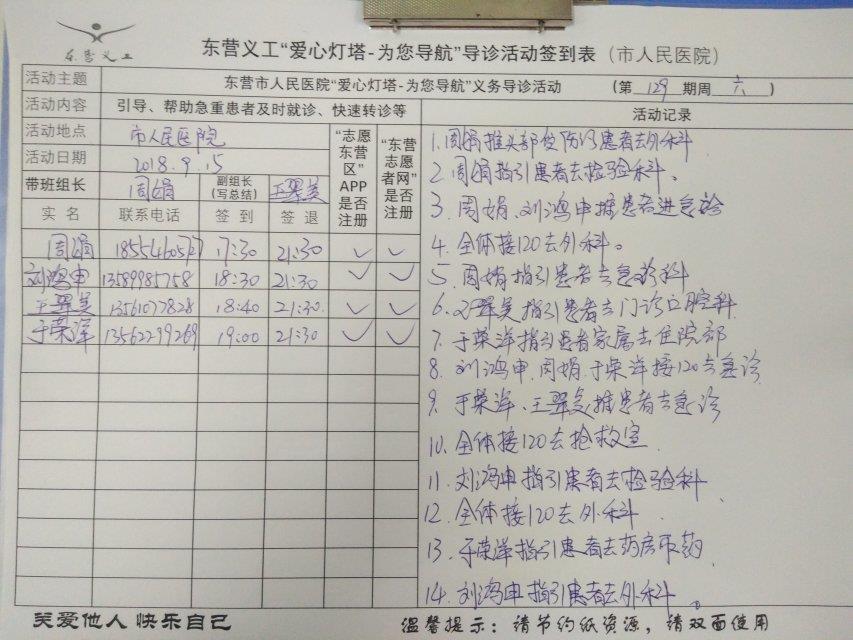 东营义工
东营义工“爱心灯塔-为您导航”导诊活动签到表（市人民医院）
活动主题 东营市人民医院“爱心灯塔-为您导航”义务导诊活动 （第 129 期周 六 ）
活动内容 引导、帮助急重患者及时就诊、快速转诊等 活动记录
活动地点 市人民医院
活动日期 2018.9.15
带班组长 周娟 副组长（写总结） 王翠美
“志愿东营区”APP是否注册
“东营志愿者网”是否注册
实名 联系电话 签到 签退
周娟 17:30 21:30 ✓ ✓
刘鸿申 13589985758 18:30 21:30 ✓ ✓
王翠美 13561077828 18:40 21:30 ✓ ✓
于荣洋 13562299269 19:00 21:30 ✓ ✓
1. 周娟推头部受伤患者去外科
2. 周娟指引患者去检验科。
3. 周娟、刘鸿申推患者进急诊
4. 全体接120去外科。
5. 周娟指引患者去急诊科
6. 王翠美指引患者去门诊口腔科
7. 于荣洋指引患者家属去住院部
8. 刘鸿申、周娟、于荣洋接120去急诊
9. 于荣洋、王翠美推患者去急诊
10. 全体接120去抢救室
11. 刘鸿申指引患者去检验科
12. 全体接120去外科
13. 于荣洋指引患者去药房取药
14. 刘鸿申指引患者去外科。
关爱他人 快乐自己 温馨提示：请节约纸资源，请双面使用